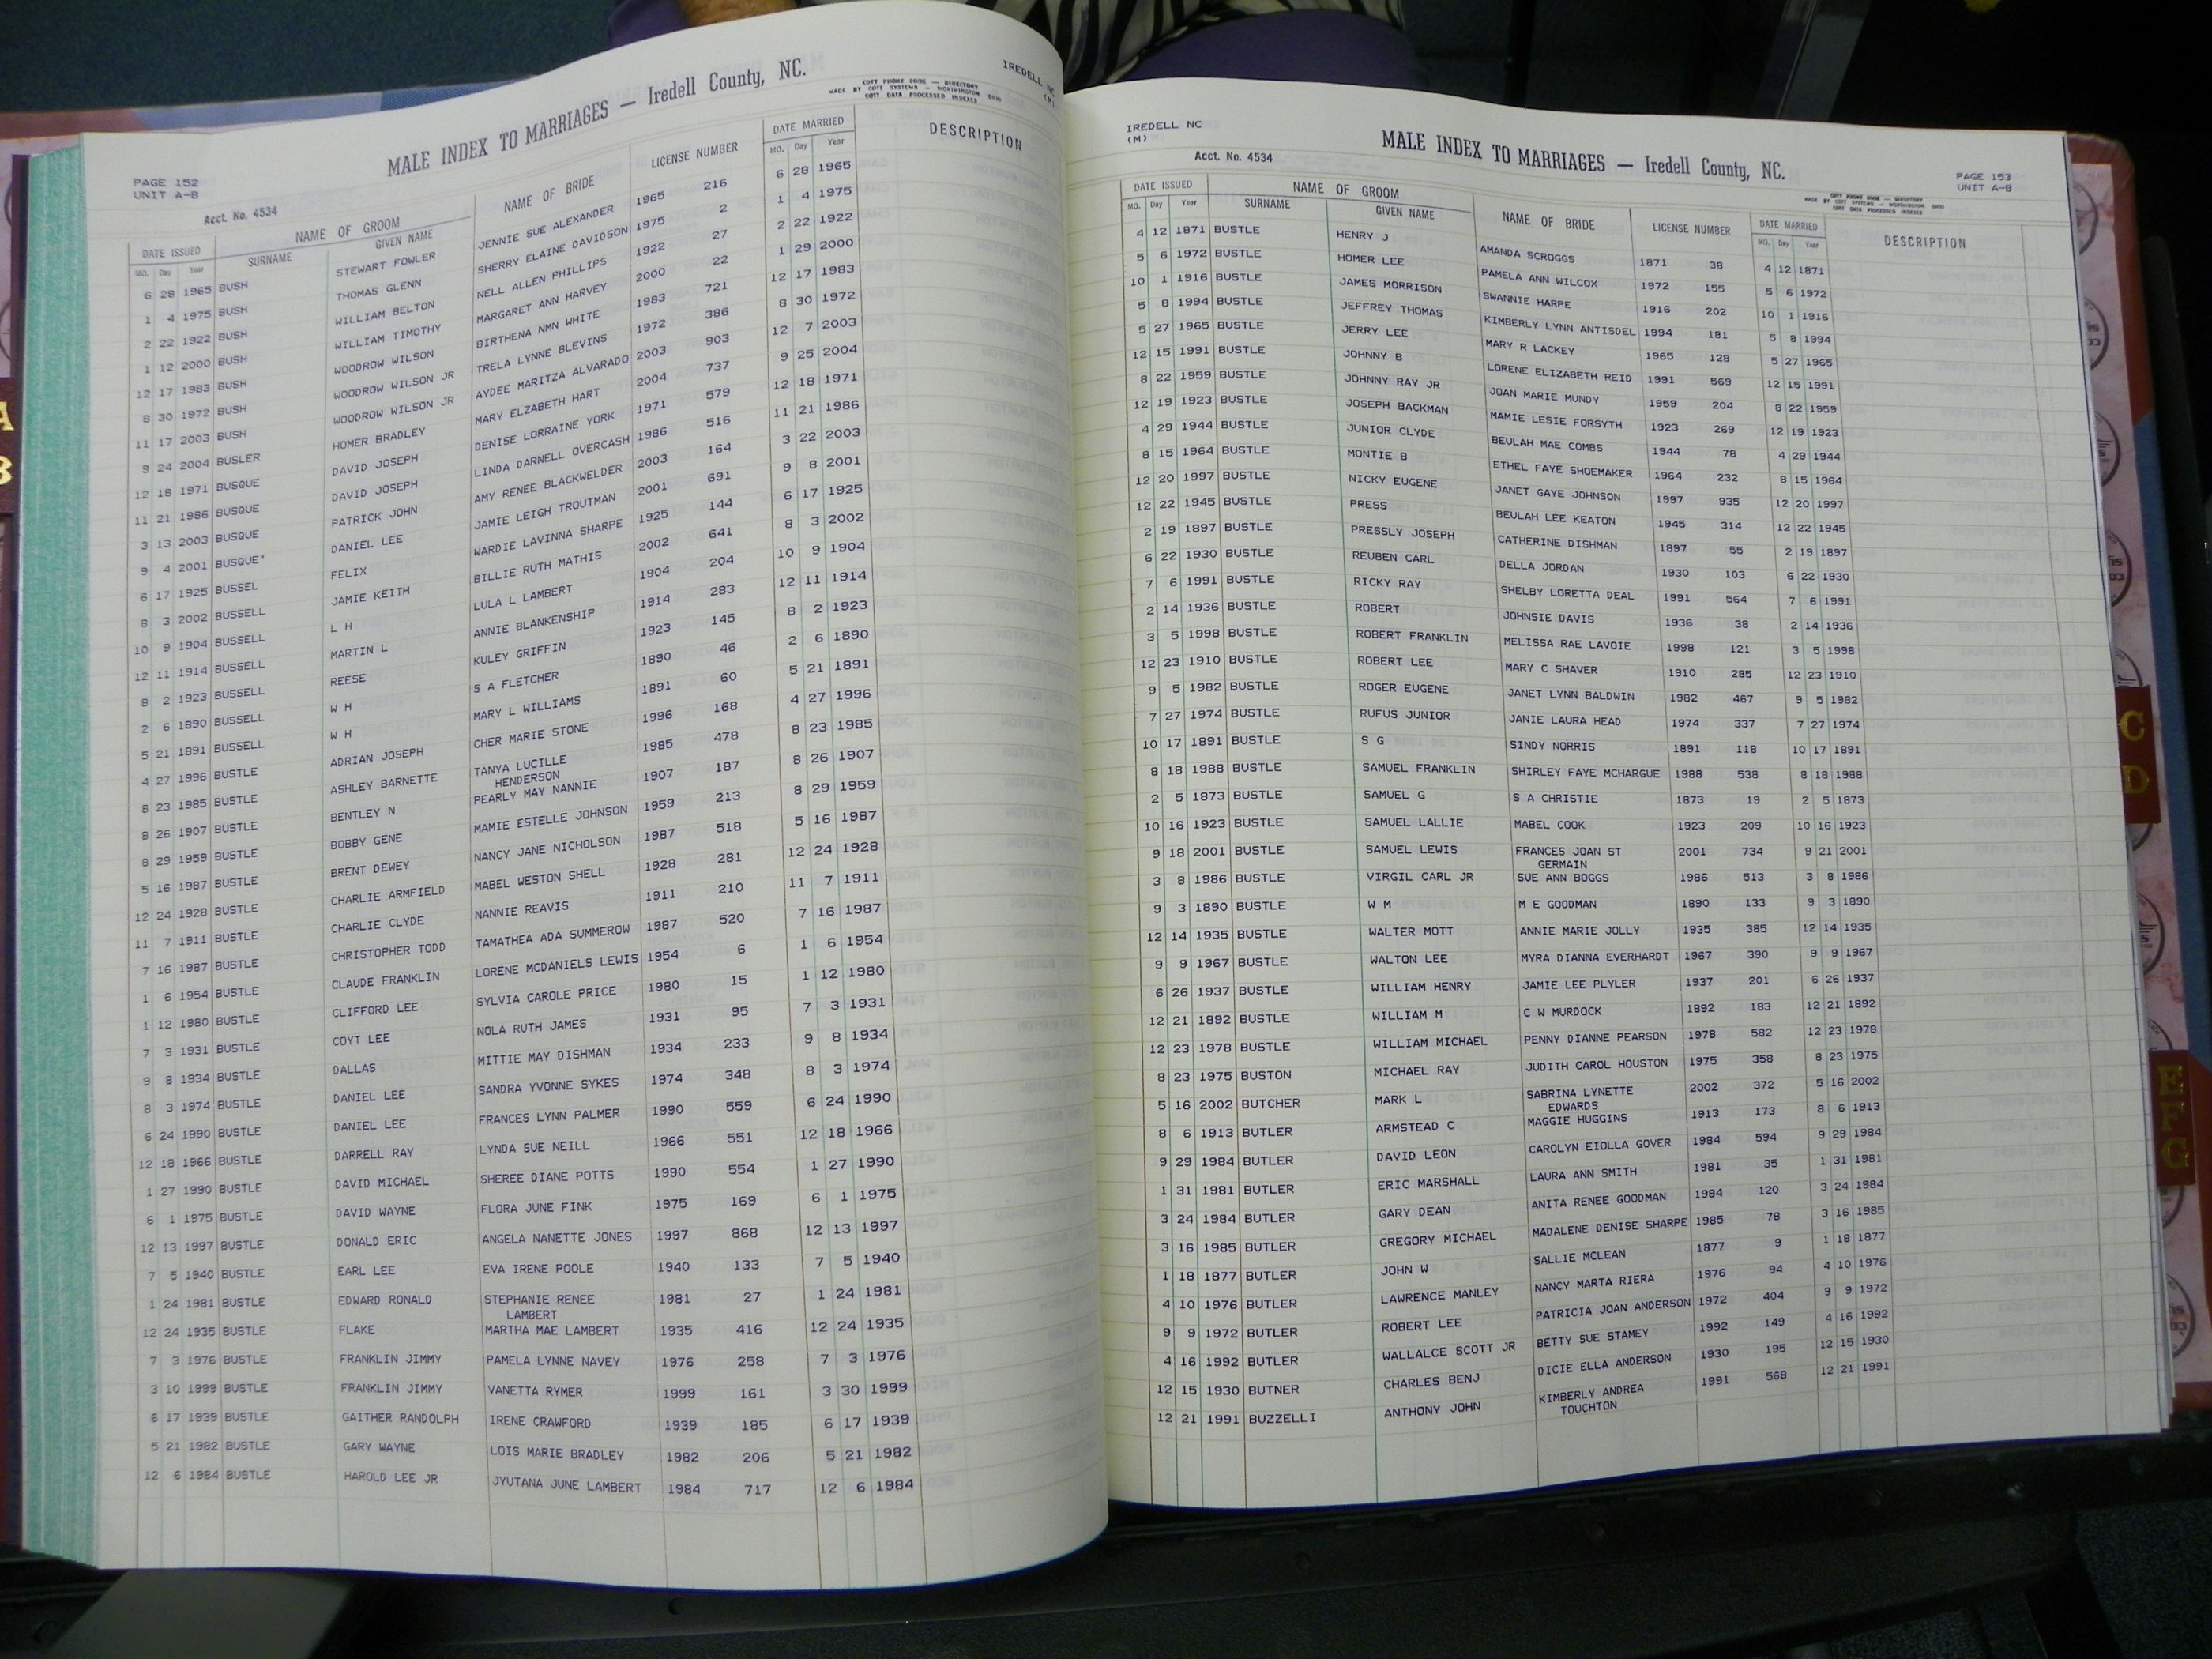 IREDELL NC
(M)
MALE INDEX TO MARRIAGES — Iredell County, NC.
COTT PHONE BOOK — DIRECTORY
MADE BY COTT SYSTEMS — WORTHINGTON OHIO
COTT DATA PROCESSED INDEXES
PAGE 152
UNIT A-B
Acct. No. 4534
DATE ISSUED NAME OF GROOM NAME OF BRIDE LICENSE NUMBER DATE MARRIED DESCRIPTION
MO. Day Year SURNAME GIVEN NAME MO. Day Year
6 28 1965 BUSH STEWART FOWLER JENNIE SUE ALEXANDER 1965 216 6 28 1965
1 4 1975 BUSH THOMAS GLENN SHERRY ELAINE DAVIDSON 1975 2 1 4 1975
2 22 1922 BUSH WILLIAM BELTON NELL ALLEN PHILLIPS 1922 27 2 22 1922
1 12 2000 BUSH WILLIAM TIMOTHY MARGARET ANN HARVEY 2000 22 1 29 2000
12 17 1983 BUSH WOODROW WILSON BIRTHENA NMN WHITE 1983 721 12 17 1983
8 30 1972 BUSH WOODROW WILSON JR TRELA LYNNE BLEVINS 1972 386 8 30 1972
11 17 2003 BUSH WOODROW WILSON JR AYDEE MARITZA ALVARADO 2003 903 12 7 2003
9 24 2004 BUSLER HOMER BRADLEY MARY ELZABETH HART 2004 737 9 25 2004
12 18 1971 BUSQUE DAVID JOSEPH DENISE LORRAINE YORK 1971 579 12 18 1971
11 21 1986 BUSQUE DAVID JOSEPH LINDA DARNELL OVERCASH 1986 516 11 21 1986
3 13 2003 BUSQUE PATRICK JOHN AMY RENEE BLACKWELDER 2003 164 3 22 2003
9 4 2001 BUSQUE' DANIEL LEE JAMIE LEIGH TROUTMAN 2001 691 9 8 2001
6 17 1925 BUSSEL FELIX WARDIE LAVINNA SHARPE 1925 144 6 17 1925
8 3 2002 BUSSELL JAMIE KEITH BILLIE RUTH MATHIS 2002 641 8 3 2002
10 9 1904 BUSSELL L H LULA L LAMBERT 1904 204 10 9 1904
12 11 1914 BUSSELL MARTIN L ANNIE BLANKENSHIP 1914 283 12 11 1914
8 2 1923 BUSSELL REESE KULEY GRIFFIN 1923 145 8 2 1923
2 6 1890 BUSSELL W H S A FLETCHER 1890 46 2 6 1890
5 21 1891 BUSSELL W H MARY L WILLIAMS 1891 60 5 21 1891
4 27 1996 BUSTLE ADRIAN JOSEPH CHER MARIE STONE 1996 168 4 27 1996
8 23 1985 BUSTLE ASHLEY BARNETTE TANYA LUCILLE 1985 478 8 23 1985
HENDERSON
8 26 1907 BUSTLE BENTLEY N PEARLY MAY NANNIE 1907 187 8 26 1907
8 29 1959 BUSTLE BOBBY GENE MAMIE ESTELLE JOHNSON 1959 213 8 29 1959
5 16 1987 BUSTLE BRENT DEWEY NANCY JANE NICHOLSON 1987 518 5 16 1987
12 24 1928 BUSTLE CHARLIE ARMFIELD MABEL WESTON SHELL 1928 281 12 24 1928
11 7 1911 BUSTLE CHARLIE CLYDE NANNIE REAVIS 1911 210 11 7 1911
7 16 1987 BUSTLE CHRISTOPHER TODD TAMATHEA ADA SUMMEROW 1987 520 7 16 1987
1 6 1954 BUSTLE CLAUDE FRANKLIN LORENE MCDANIELS LEWIS 1954 6 1 6 1954
1 12 1980 BUSTLE CLIFFORD LEE SYLVIA CAROLE PRICE 1980 15 1 12 1980
7 3 1931 BUSTLE COYT LEE NOLA RUTH JAMES 1931 95 7 3 1931
9 8 1934 BUSTLE DALLAS MITTIE MAY DISHMAN 1934 233 9 8 1934
8 3 1974 BUSTLE DANIEL LEE SANDRA YVONNE SYKES 1974 348 8 3 1974
6 24 1990 BUSTLE DANIEL LEE FRANCES LYNN PALMER 1990 559 6 24 1990
12 18 1966 BUSTLE DARRELL RAY LYNDA SUE NEILL 1966 551 12 18 1966
1 27 1990 BUSTLE DAVID MICHAEL SHEREE DIANE POTTS 1990 554 1 27 1990
6 1 1975 BUSTLE DAVID WAYNE FLORA JUNE FINK 1975 169 6 1 1975
12 13 1997 BUSTLE DONALD ERIC ANGELA NANETTE JONES 1997 868 12 13 1997
7 5 1940 BUSTLE EARL LEE EVA IRENE POOLE 1940 133 7 5 1940
1 24 1981 BUSTLE EDWARD RONALD STEPHANIE RENEE 1981 27 1 24 1981
LAMBERT
12 24 1935 BUSTLE FLAKE MARTHA MAE LAMBERT 1935 416 12 24 1935
7 3 1976 BUSTLE FRANKLIN JIMMY PAMELA LYNNE NAVEY 1976 258 7 3 1976
3 10 1999 BUSTLE FRANKLIN JIMMY VANETTA RYMER 1999 161 3 30 1999
6 17 1939 BUSTLE GAITHER RANDOLPH IRENE CRAWFORD 1939 185 6 17 1939
5 21 1982 BUSTLE GARY WAYNE LOIS MARIE BRADLEY 1982 206 5 21 1982
12 6 1984 BUSTLE HAROLD LEE JR JYUTANA JUNE LAMBERT 1984 717 12 6 1984
IREDELL NC
(M)
MALE INDEX TO MARRIAGES — Iredell County, NC.
Acct. No. 4534
PAGE 153
UNIT A-B
COTT PHONE BOOK — DIRECTORY
MADE BY COTT SYSTEMS — WORTHINGTON OHIO
COTT DATA PROCESSED INDEXES
DATE ISSUED NAME OF GROOM NAME OF BRIDE LICENSE NUMBER DATE MARRIED DESCRIPTION
MO. Day Year SURNAME GIVEN NAME MO. Day Year
4 12 1871 BUSTLE HENRY J AMANDA SCROGGS 1871 38 4 12 1871
5 6 1972 BUSTLE HOMER LEE PAMELA ANN WILCOX 1972 155 5 6 1972
10 1 1916 BUSTLE JAMES MORRISON SWANNIE HARPE 1916 202 10 1 1916
5 8 1994 BUSTLE JEFFREY THOMAS KIMBERLY LYNN ANTISDEL 1994 181 5 8 1994
5 27 1965 BUSTLE JERRY LEE MARY R LACKEY 1965 128 5 27 1965
12 15 1991 BUSTLE JOHNNY B LORENE ELIZABETH REID 1991 569 12 15 1991
8 22 1959 BUSTLE JOHNNY RAY JR JOAN MARIE MUNDY 1959 204 8 22 1959
12 19 1923 BUSTLE JOSEPH BACKMAN MAMIE LESIE FORSYTH 1923 269 12 19 1923
4 29 1944 BUSTLE JUNIOR CLYDE BEULAH MAE COMBS 1944 78 4 29 1944
8 15 1964 BUSTLE MONTIE B ETHEL FAYE SHOEMAKER 1964 232 8 15 1964
12 20 1997 BUSTLE NICKY EUGENE JANET GAYE JOHNSON 1997 935 12 20 1997
12 22 1945 BUSTLE PRESS BEULAH LEE KEATON 1945 314 12 22 1945
2 19 1897 BUSTLE PRESSLY JOSEPH CATHERINE DISHMAN 1897 55 2 19 1897
6 22 1930 BUSTLE REUBEN CARL DELLA JORDAN 1930 103 6 22 1930
7 6 1991 BUSTLE RICKY RAY SHELBY LORETTA DEAL 1991 564 7 6 1991
2 14 1936 BUSTLE ROBERT JOHNSIE DAVIS 1936 38 2 14 1936
3 5 1998 BUSTLE ROBERT FRANKLIN MELISSA RAE LAVOIE 1998 121 3 5 1998
12 23 1910 BUSTLE ROBERT LEE MARY C SHAVER 1910 285 12 23 1910
9 5 1982 BUSTLE ROGER EUGENE JANET LYNN BALDWIN 1982 467 9 5 1982
7 27 1974 BUSTLE RUFUS JUNIOR JANIE LAURA HEAD 1974 337 7 27 1974
10 17 1891 BUSTLE S G SINDY NORRIS 1891 118 10 17 1891
8 18 1988 BUSTLE SAMUEL FRANKLIN SHIRLEY FAYE MCHARGUE 1988 538 8 18 1988
2 5 1873 BUSTLE SAMUEL G S A CHRISTIE 1873 19 2 5 1873
10 16 1923 BUSTLE SAMUEL LALLIE MABEL COOK 1923 209 10 16 1923
9 18 2001 BUSTLE SAMUEL LEWIS FRANCES JOAN ST 2001 734 9 21 2001
GERMAIN
3 8 1986 BUSTLE VIRGIL CARL JR SUE ANN BOGGS 1986 513 3 8 1986
9 3 1890 BUSTLE W M M E GOODMAN 1890 133 9 3 1890
12 14 1935 BUSTLE WALTER MOTT ANNIE MARIE JOLLY 1935 385 12 14 1935
9 9 1967 BUSTLE WALTON LEE MYRA DIANNA EVERHARDT 1967 390 9 9 1967
6 26 1937 BUSTLE WILLIAM HENRY JAMIE LEE PLYLER 1937 201 6 26 1937
12 21 1892 BUSTLE WILLIAM M C W MURDOCK 1892 183 12 21 1892
12 23 1978 BUSTLE WILLIAM MICHAEL PENNY DIANNE PEARSON 1978 582 12 23 1978
8 23 1975 BUSTON MICHAEL RAY JUDITH CAROL HOUSTON 1975 358 8 23 1975
5 16 2002 BUTCHER MARK L SABRINA LYNETTE 2002 372 5 16 2002
EDWARDS
8 6 1913 BUTLER ARMSTEAD C MAGGIE HUGGINS 1913 173 8 6 1913
9 29 1984 BUTLER DAVID LEON CAROLYN EIOLLA GOVER 1984 594 9 29 1984
1 31 1981 BUTLER ERIC MARSHALL LAURA ANN SMITH 1981 35 1 31 1981
3 24 1984 BUTLER GARY DEAN ANITA RENEE GOODMAN 1984 120 3 24 1984
3 16 1985 BUTLER GREGORY MICHAEL MADALENE DENISE SHARPE 1985 78 3 16 1985
1 18 1877 BUTLER JOHN W SALLIE MCLEAN 1877 9 1 18 1877
4 10 1976 BUTLER LAWRENCE MANLEY NANCY MARTA RIERA 1976 94 4 10 1976
9 9 1972 BUTLER ROBERT LEE PATRICIA JOAN ANDERSON 1972 404 9 9 1972
4 16 1992 BUTLER WALLALCE SCOTT JR BETTY SUE STAMEY 1992 149 4 16 1992
12 15 1930 BUTNER CHARLES BENJ DICIE ELLA ANDERSON 1930 195 12 15 1930
12 21 1991 BUZZELLI ANTHONY JOHN KIMBERLY ANDREA 1991 568 12 21 1991
TOUCHTON
A
B
C
D
E
F
G